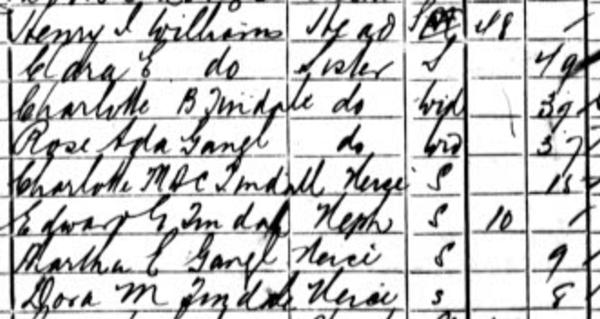 Henry I Williams Head S 48
Clara E do Sister S 49
Charlotte B Tindale do Wid 39
Rose Ada Gangl do Wid 37
Charlotte M D C Tindall Neice S 15
Edward G Tindall Neph S 10
Martha E Gangl Neice S 9
Dora M Tindale Neice S 8